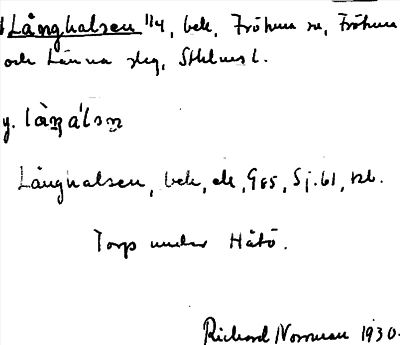 Långhalsen 1/4, bek, Fröhuna sn, Fröhuna
och Länna skg, Sthlms l.
y. làŋa'lsn
Långhalsen, bek, ek, G65, Sj. 61, rzb.
Torp under Håtö.
Richard Norrman 1930.